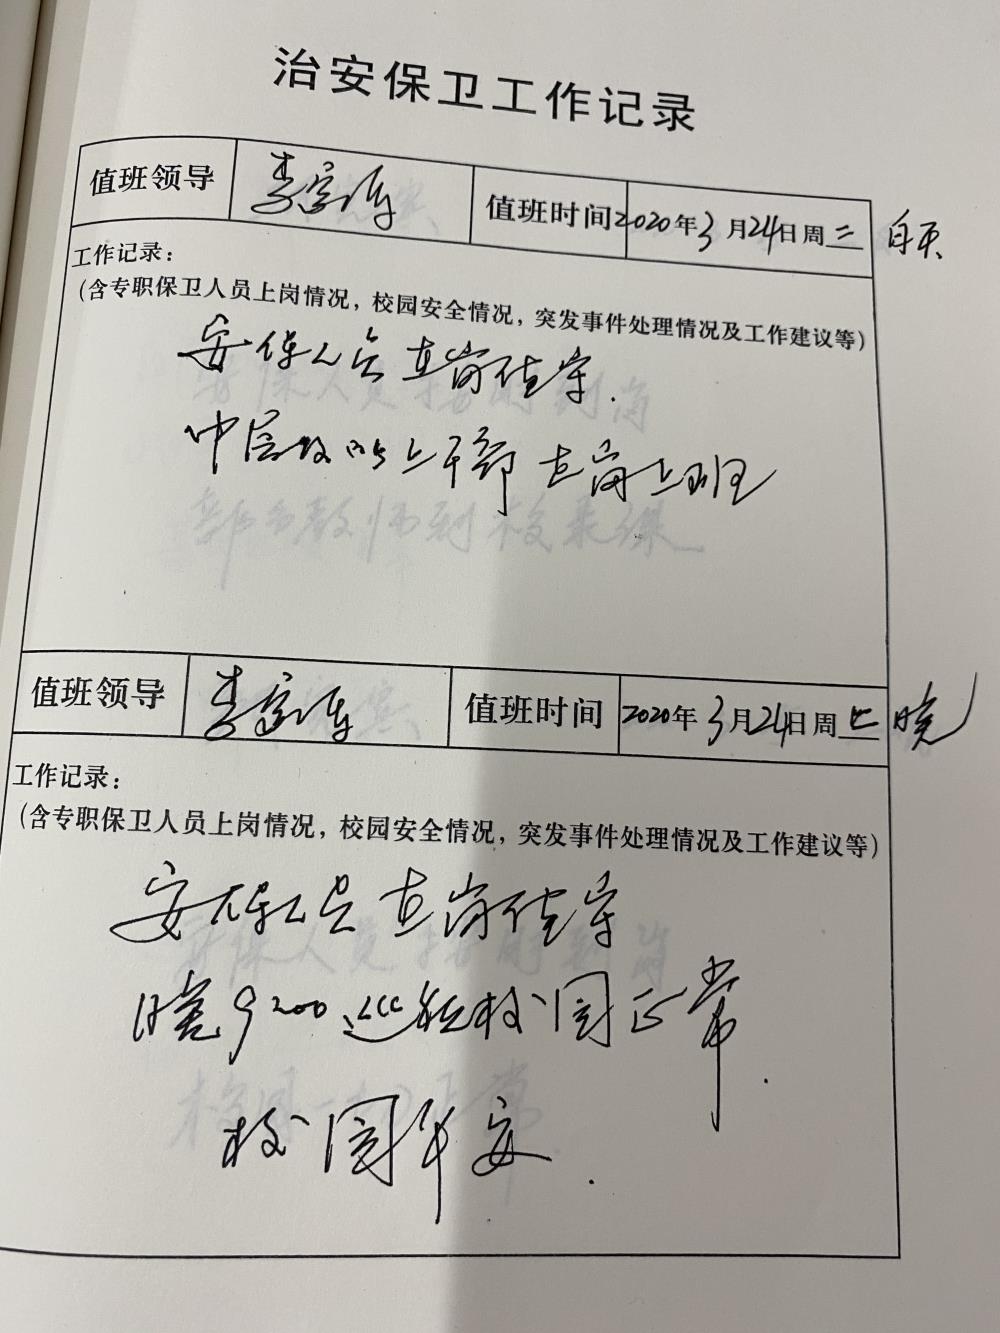 治安保卫工作记录
值班领导 李富海 值班时间 2020年3月24日周二 白天
工作记录：
（含专职保卫人员上岗情况，校园安全情况，突发事件处理情况及工作建议等）
安保人员在岗值守.
中层及以上干部在岗上班
值班领导 李富海 值班时间 2020年3月24日周二 晚
工作记录：
（含专职保卫人员上岗情况，校园安全情况，突发事件处理情况及工作建议等）
安保人员在岗值守
晚9:00巡视校园正常.
校园平安.